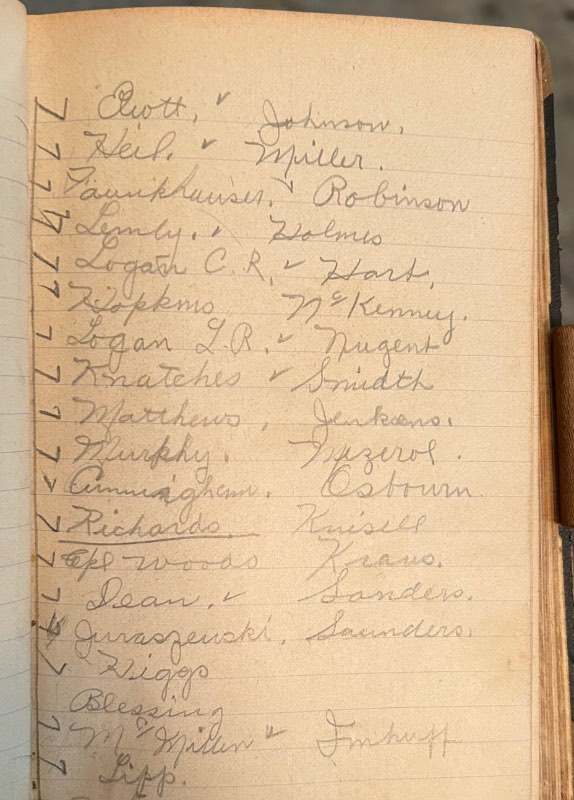 7 Eliott. ✓ Johnson.
7 Heil. ✓ Miller.
7 Faunkhauser. ✓ Robinson
Lemly. ✓ Holmes
7 Logan C. R. ✓ Hart.
7 Hopkins McKenney.
7 Logan L R. ✓ Nugent
7 Knatches ✓ Smidth
7 Matthews, Jenkens.
7 Murphy.
✓ Cunningham. Osbourn
7 Richards. Knisell
7 Cpl Woods Kraus.
7 Dean. ✓ Sanders.
Juraszewski. Saunders.
✓ Higgs
Blessing
7 McMillen ✓ Imhuff
7 Lipp.